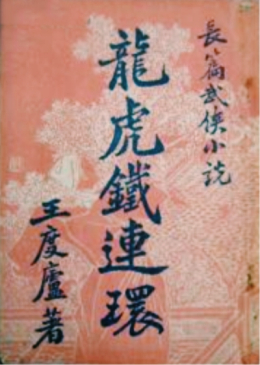 長篇武俠小説
龍虎鐵連環
王度廬著